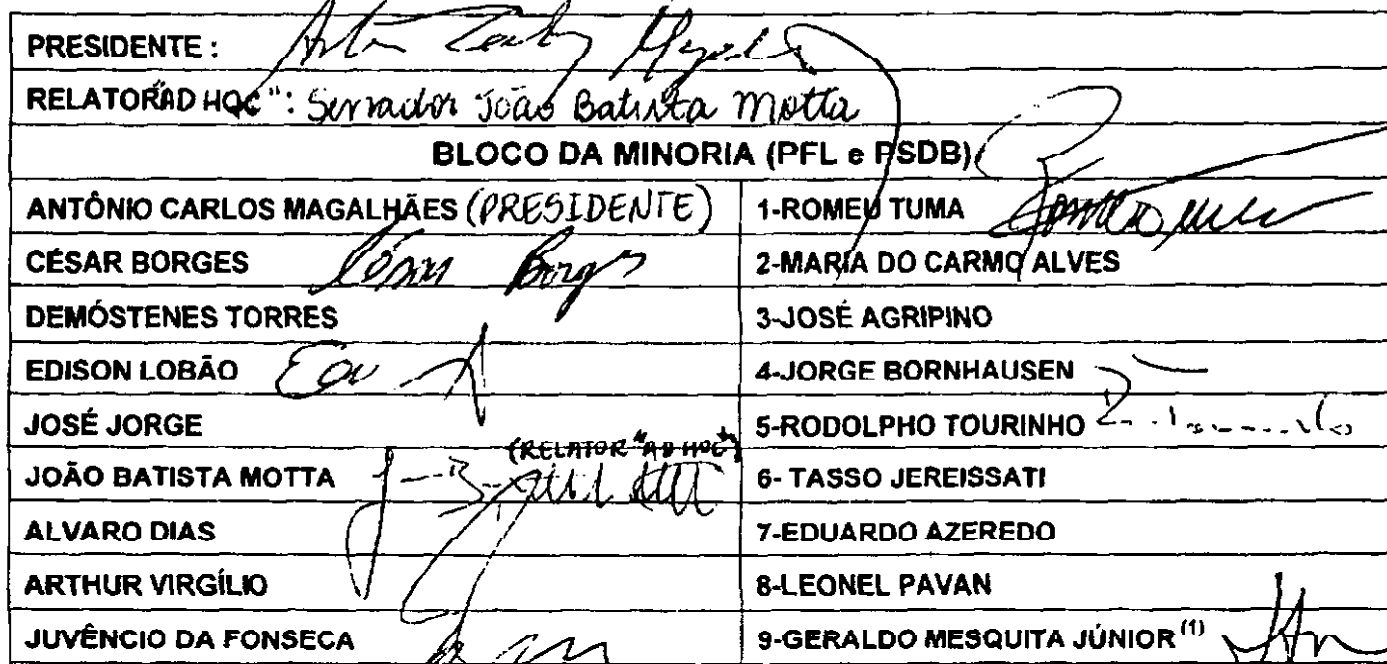 PRESIDENTE :
RELATOR "AD HOC" : Senador João Batista Motta
BLOCO DA MINORIA (PFL e PSDB)
ANTÔNIO CARLOS MAGALHÃES (PRESIDENTE) 1-ROMEU TUMA
CÉSAR BORGES César Borges 2-MARIA DO CARMO ALVES
DEMÓSTENES TORRES 3-JOSÉ AGRIPINO
EDISON LOBÃO 4-JORGE BORNHAUSEN
JOSÉ JORGE 5-RODOLPHO TOURINHO
(RELATOR "AD HOC")
JOÃO BATISTA MOTTA 6- TASSO JEREISSATI
ALVARO DIAS 7-EDUARDO AZEREDO
ARTHUR VIRGÍLIO 8-LEONEL PAVAN
JUVÊNCIO DA FONSECA 9-GERALDO MESQUITA JÚNIOR (1)